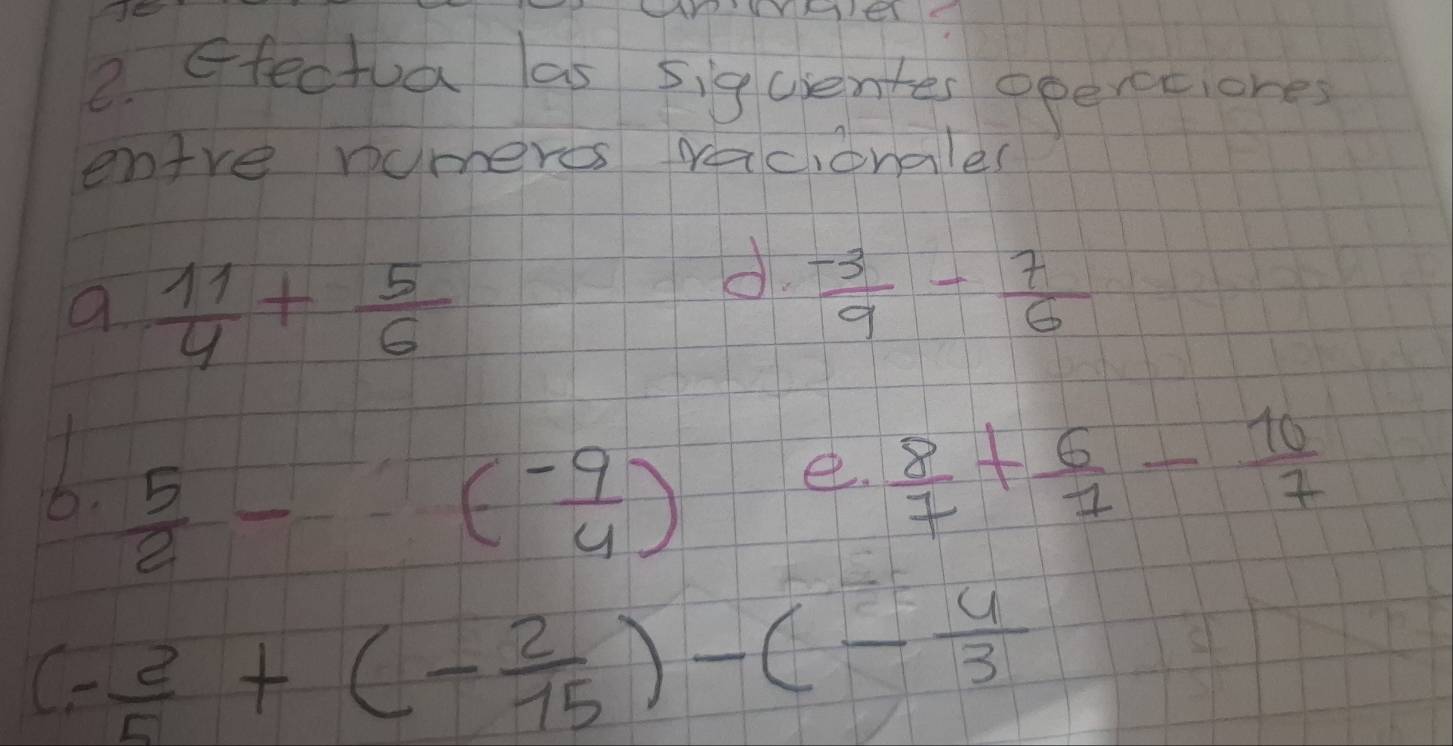 2. Efectua las siguientes operaciones
entre numeros racionales
a. 11/4 + 5/6
d. -3/9 - 7/6
b. 5/2 - (-9/4)
e. 8/7 + 6/7 - 10/7
c. -2/5 + (-2/15) - (-4/3